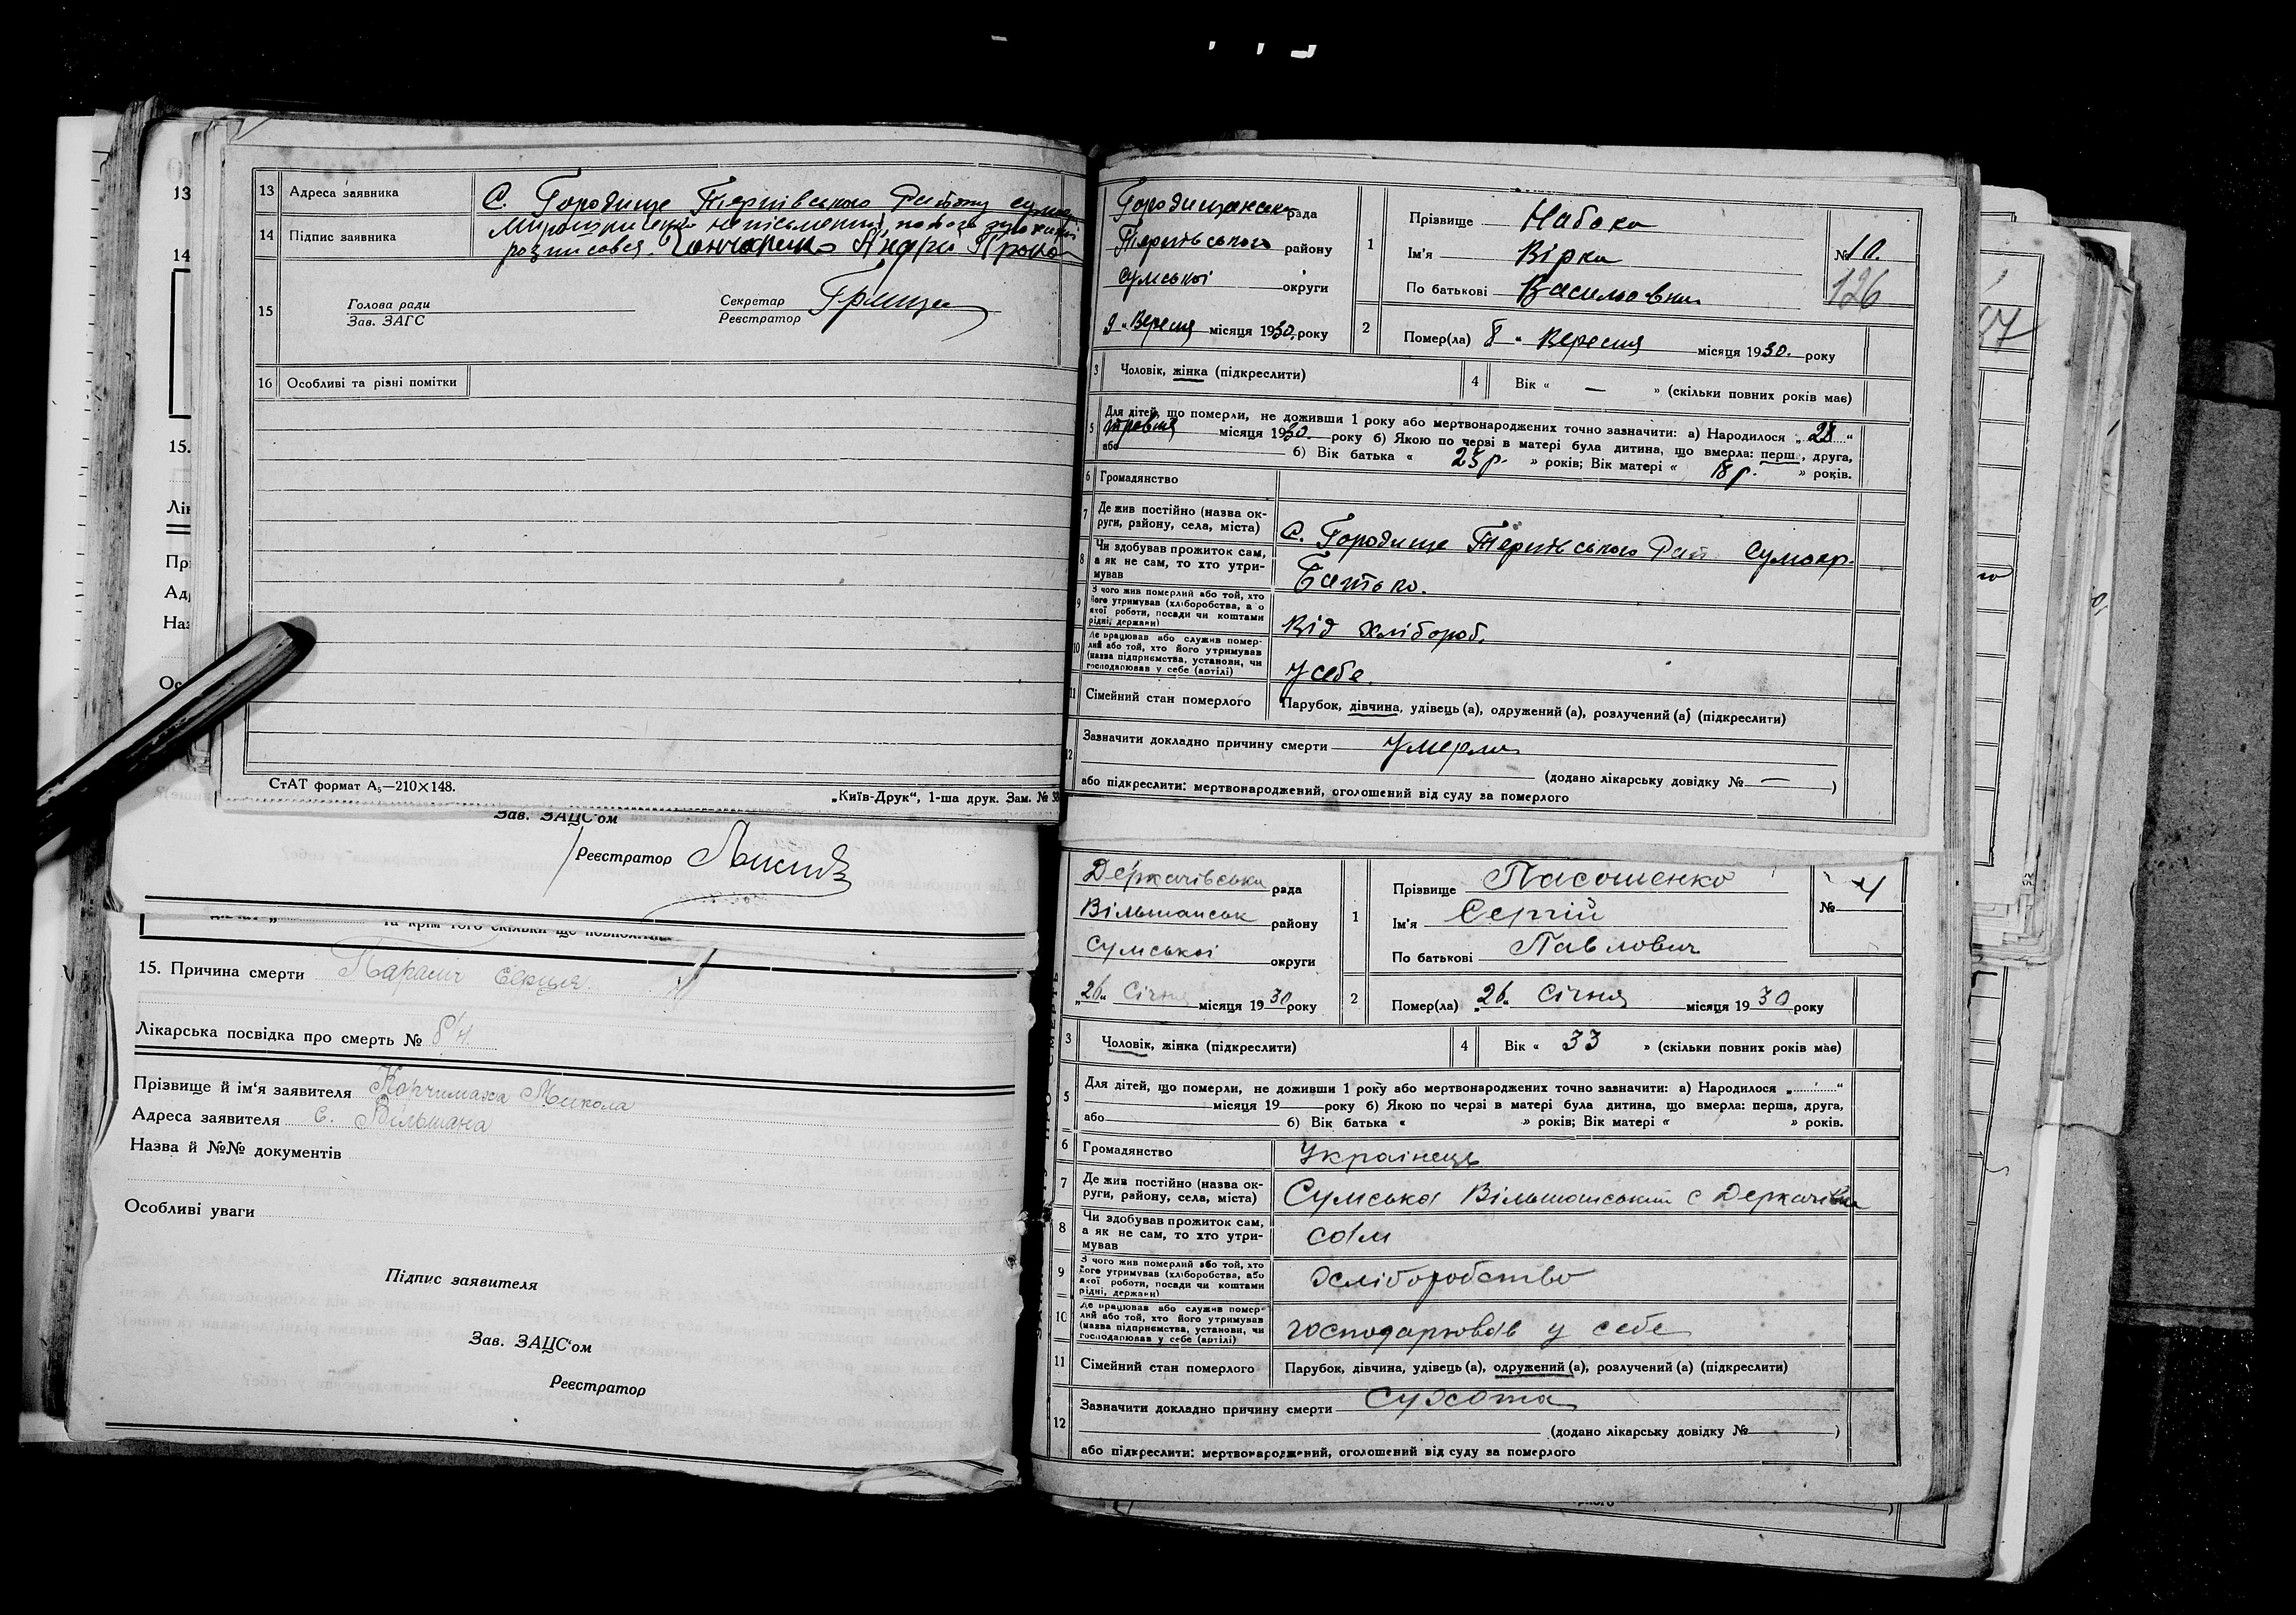 13 Адреса заявника С. Городище Тернівського Району
14 Підпис заявника
розписався. Андрій
15 Голова ради
Зав. ЗАГС
Секретар
Реєстратор
16 Особливі та різні помітки
СтАТ формат А₅—210×148.
„Київ-Друк“, 1-ша друк. Зам. №
Зав. ЗАЦС'ом
Реєстратор
15. Причина смерти Параліч серця
Лікарська посвідка про смерть № б/н.
Прізвище й ім'я заявителя Микола
Адреса заявителя С. Вільшана
Назва й №№ документів
Особливі уваги
Підпис заявителя
Зав. ЗАЦС'ом
Реєстратор
Городищанська рада
Тернівського району
Сумської округи
9 „ Вересня місяця 1930, року
1 Прізвище Набока
Ім'я Вірка
По батькові Василівна
№ 10.
126
2 Помер(ла) 8 „ Вересня місяця 1930. року
3 Чоловік, жінка (підкреслити)
4 Вік « — » (скільки повних років має)
5 Для дітей, що померли, не доживши 1 року або мертвонароджених точно зазначити: а) Народилося „ 28 “
травня місяця 1930. року б) Якою по черзі в матері була дитина, що вмерла: перш., друга,
або б) Вік батька « 25 р. » років; Вік матері « 18 р. » років.
6 Громадянство
7 Де жив постійно (назва ок-
руги, району, села, міста) С. Городище Тернівського Рай Сумокр.
8 Чи здобував прожиток сам,
а як не сам, то хто утри-
мував Батько.
9 З чого жив померлий або той, хто
його утримував (хліборобства, а о
якої роботи, посади чи коштами
рідні, держави) Від хлібороб.
10 Де працював або служив помер-
лий або той, хто його утримував
(назва підприємства, установи, чи
господарював у себе (артілі) У себе.
11 Сімейний стан померлого Парубок, дівчина, удівець (а), одружений (а), розлучений (а) (підкреслити)
12 Зазначити докладно причину смерти Умерла
(додано лікарську довідку № — )
або підкреслити: мертвонароджений, оголошений від суду за померлого
Деркачівська рада
Вільшанськ району
Сумської округи
„26“ Січня місяця 1930 року
1 Прізвище Пасошенко
Ім'я Сергій
По батькові Павлович
№ 4
2 Помер(ла) „26“ Січня місяця 1930 року
3 Чоловік, жінка (підкреслити)
4 Вік « 33 » (скільки повних років має)
5 Для дітей, що померли, не доживши 1 року або мертвонароджених точно зазначити: а) Народилося „ “
місяця 19 року б) Якою по черзі в матері була дитина, що вмерла: перша, друга,
або б) Вік батька « » років; Вік матері « » років.
6 Громадянство Українець
7 Де жив постійно (назва ок-
руги, району, села, міста) Сумська Вільшанський с Деркачівка
8 Чи здобував прожиток сам,
а як не сам, то хто утри-
мував сам
9 З чого жив померлий або той, хто
його утримував (хліборобства, або
якої роботи, посади чи коштами
рідні, держави) Хліборобство
10 Де працював або служив помер-
лий або той, хто його утримував
(назва підприємства, установи, чи
господарював у себе (артілі) господарював у себе
11 Сімейний стан померлого Парубок, дівчина, удівець (а), одружений (а), розлучений (а) (підкреслити)
12 Зазначити докладно причину смерти Сухота
(додано лікарську довідку № )
або підкреслити: мертвонароджений, оголошений від суду за померлого